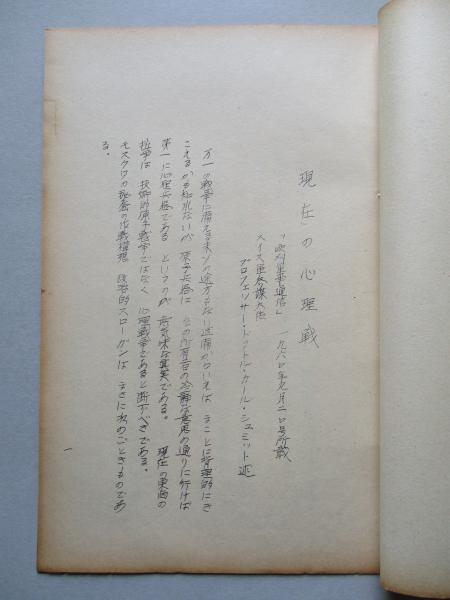 現在の心理戦
「欧州軍事通信」一九六〇年九月二〇号所載
スイス軍参謀大佐
プロフェッサー・ドクトル・カール・シュミット述
万一の戦争に備える米ソの途方もない武備からいえば まことに背理的にき
こえるかも知れないが 原子兵器は その所有者の冷静な意思の通りに行けば
第一に心理兵器である というのが 無気味な真実である。 現在の東西の
抗争は 技術的原子戦争ではなく心理戦争であると断ずべきである。
モスクワの秘密の作戦構想 政治的スローガンは まさに次のごときものであ
る。
一